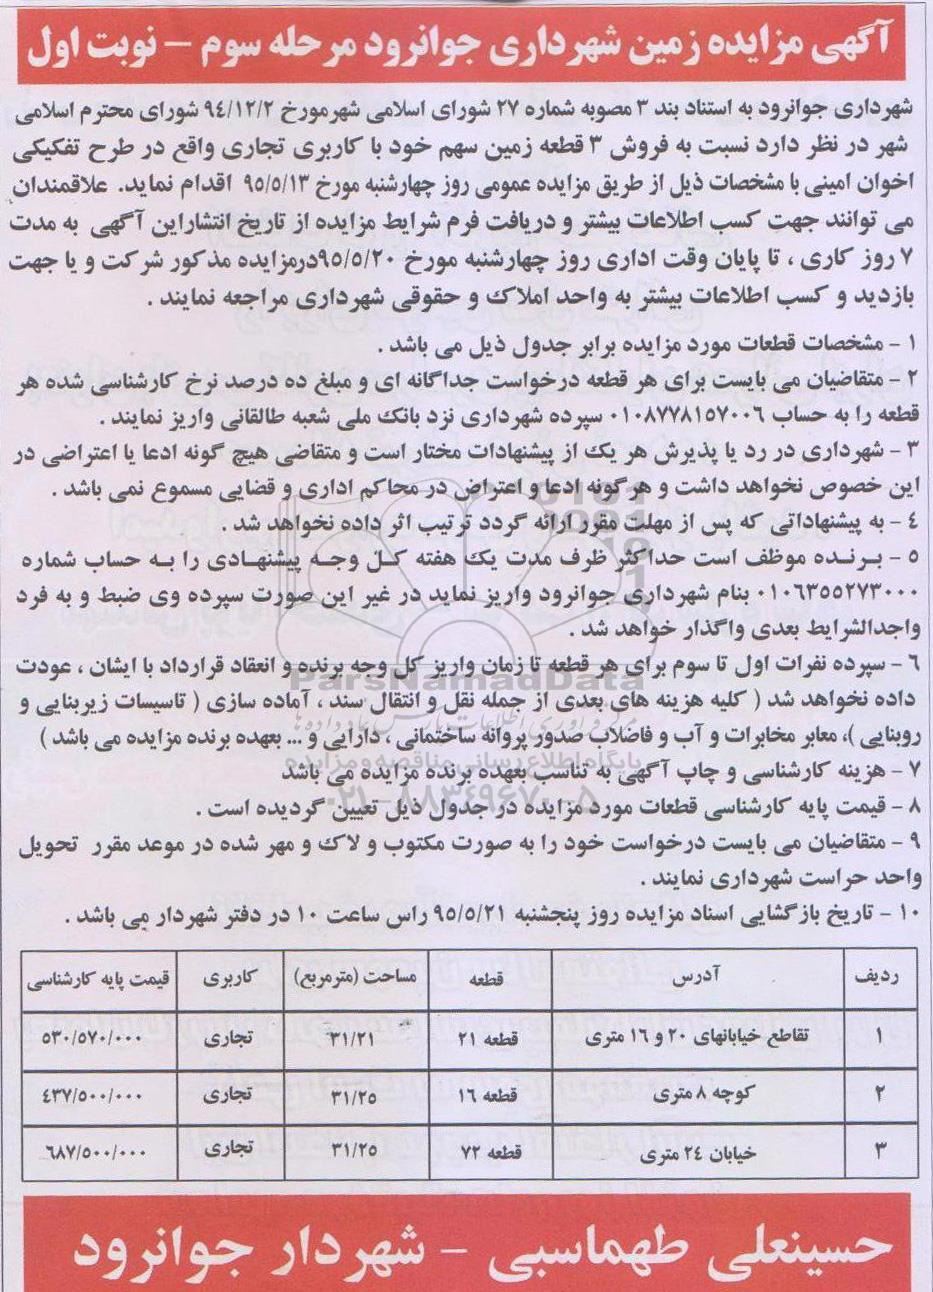 آگهی مزایده زمین شهرداری جوانرود مرحله سوم – نوبت اول
شهرداری جوانرود به استناد بند ۳ مصوبه شماره ۲۷ شورای اسلامی شهرمورخ ۹٤/۱۲/۲ شورای محترم اسلامی
شهر در نظر دارد نسبت به فروش ۳ قطعه زمین سهم خود با کاربری تجاری واقع در طرح تفکیکی
اخوان امینی با مشخصات ذیل از طریق مزایده عمومی روز چهارشنبه مورخ ۹۵/۵/۱۳ اقدام نماید. علاقمندان
می توانند جهت کسب اطلاعات بیشتر و دریافت فرم شرایط مزایده از تاریخ انتشاراین آگهی به مدت
۷ روز کاری ، تا پایان وقت اداری روز چهارشنبه مورخ ۹۵/۵/۲۰درمزایده مذکور شرکت و یا جهت
بازدید و کسب اطلاعات بیشتر به واحد املاک و حقوقی شهرداری مراجعه نمایند .
۱ – مشخصات قطعات مورد مزایده برابر جدول ذیل می باشد .
۲ – متقاضیان می بایست برای هر قطعه درخواست جداگانه ای و مبلغ ده درصد نرخ کارشناسی شده هر
قطعه را به حساب ۰۱۰۸۷۷۸۱۵۷۰۰۶ سپرده شهرداری نزد بانک ملی شعبه طالقانی واریز نمایند .
۳ – شهرداری در رد یا پذیرش هر یک از پیشنهادات مختار است و متقاضی هیچ گونه ادعا یا اعتراضی در
این خصوص نخواهد داشت و هرگونه ادعا و اعتراض در محاکم اداری و قضایی مسموع نمی باشد .
٤ – به پیشنهاداتی که پس از مهلت مقرر ارائه گردد ترتیب اثر داده نخواهد شد .
۵ – برنده موظف است حداکثر ظرف مدت یک هفته کل وجه پیشنهادی را به حساب شماره
۰۱۰۶۳۵۵۲۷۳۰۰۰ بنام شهرداری جوانرود واریز نماید در غیر این صورت سپرده وی ضبط و به فرد
واجدالشرایط بعدی واگذار خواهد شد .
۶ – سپرده نفرات اول تا سوم برای هر قطعه تا زمان واریز کل وجه برنده و انعقاد قرارداد با ایشان ، عودت
داده نخواهد شد ( کلیه هزینه های بعدی از جمله نقل و انتقال سند ، آماده سازی ( تاسیسات زیربنایی و
روبنایی )، معابر مخابرات و آب و فاضلاب صدور پروانه ساختمانی ، دارایی و ... بعهده برنده مزایده می باشد )
۷ – هزینه کارشناسی و چاپ آگهی به تناسب بعهده برنده مزایده می باشد
۸ – قیمت پایه کارشناسی قطعات مورد مزایده در جدول ذیل تعیین گردیده است .
۹ – متقاضیان می بایست درخواست خود را به صورت مکتوب و لاک و مهر شده در موعد مقرر تحویل
واحد حراست شهرداری نمایند .
۱۰ – تاریخ بازگشایی اسناد مزایده روز پنجشنبه ۹۵/۵/۲۱ راس ساعت ۱۰ در دفتر شهردار می باشد .
ردیف آدرس قطعه مساحت (مترمربع) کاربری قیمت پایه کارشناسی
۱ تقاطع خیابانهای ۲۰ و ۱۶ متری قطعه ۲۱ ۳۱/۲۱ تجاری ۵۳۰/۵۷۰/۰۰۰
۲ کوچه ۸ متری قطعه ۱۶ ۳۱/۲۵ تجاری ٤۳۷/۵۰۰/۰۰۰
۳ خیابان ۲٤ متری قطعه ۷۲ ۳۱/۲۵ تجاری ۶۸۷/۵۰۰/۰۰۰
حسینعلی طهماسبی – شهردار جوانرود
ParsNamadData
پایگاه اطلاع رسانی مناقصه و مزایده
۰۲۱–۸۸۳٤۹۶۷۰–۵